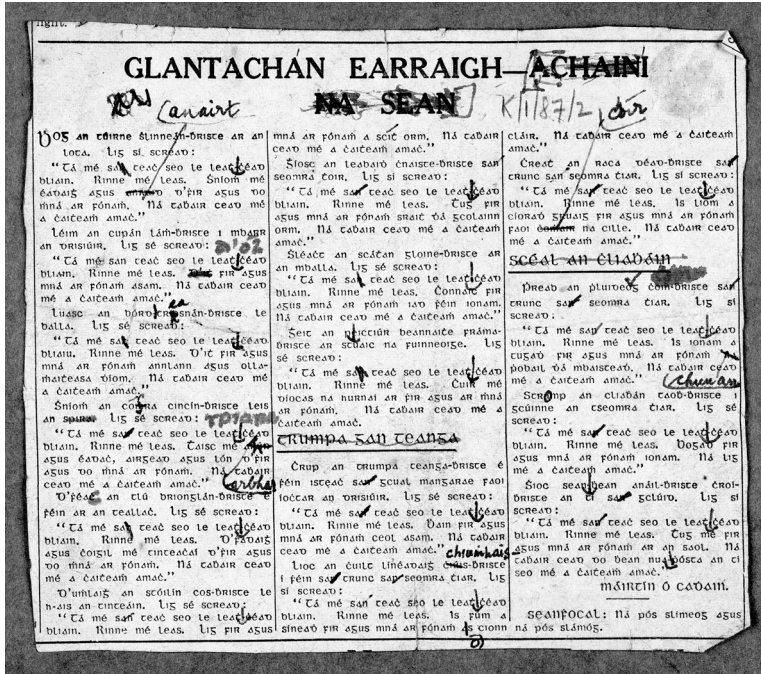 light.
GLANTACHÁN EARRAIGH—ACHAINÍ
NA SEAN
canairt
K/1/87/2
cóir
Ḃog an túirne slinneán-ḃriste ar an
lota. Lig sí scread:
“Tá mé san teaċ seo le leaṫ-ċéad
bliain. Rinne mé leas. Sníom mé
éadaiġ agus d'fir agus do
ṁná ar fónaṁ. Ná tabair cead mé
a ċaiteaṁ amaċ.”
Léim an cupán láṁ-ḃriste i mbarr
an drisiúir. Lig sé scread:
“Tá mé san teaċ seo le leaṫ-ċéad
a'ól
bliain. Rinne mé leas. fir agus
mná ar fónaṁ asam. Ná tabair cead
mé a ċaiteaṁ amaċ.”
Luasc an bórd crosnán-ḃriste le
balla. Lig sé scread:
“Tá mé san teaċ seo le leaṫ-ċéad
bliain. Rinne mé leas. D'iṫ fir agus
mná ar fónaṁ annlann agus olla-
ṁaiteasa díom. Ná tabair cead mé
a ċaiteaṁ amaċ.”
Sníoṁ an cófra cincín-ḃriste leis
an spiora. Lig sé scread:
“Tá mé san teaċ seo le leaṫ-ċéad
bliain. Rinne mé leas. Taisc mé
agus éadaċ, airgead agus lón d'fir
agus do ṁná ar fónaṁ. Ná tabair
cead mé a ċaiteaṁ amaċ.”
arbhar
D'féaċ an tlú brionglán-ḃriste é
féin ar an teallaċ. Lig sé scread:
“Tá mé san teaċ seo le leaṫ-ċéad
bliain. Rinne mé leas. D'fadaiġ
agus ċoigil mé tinteaċaí d'fir agus
do ṁná ar fónaṁ. Ná tabair cead
mé a ċaiteaṁ amaċ.”
D'uṁlaiġ an stóilín cos-ḃriste le
h-ais an tinteáin. Lig sé scread:
“Tá mé san teaċ seo le leaṫ-ċéad
bliain. Rinne mé leas. Lig fir agus
mná ar fónaṁ a scíṫ orm. Ná tabair
cead mé a ċaiteaṁ amaċ.”
Síosc an leabaiḋ ċnáiste-ḃriste san
seomra ṫoir. Lig sí scread:
“Tá mé san teaċ seo le leaṫ-ċéad
bliain. Rinne mé leas. Ṫug fir
agus mná ar fónaṁ sraiṫ dá gcolainn
orm. Ná tabair cead mé a ċaiteaṁ
amaċ.”
Sléaċt an scátán gloine-ḃriste ar
an mballa. Lig sé scread:
“Tá mé san teaċ seo le leaṫ-ċéad
bliain. Rinne mé leas. Ċonnaic fir
agus mná ar fónaṁ iad féin ionam.
Ná tabair cead mé a ċaiteaṁ amaċ.”
Ṡeit an pictiúr beannaiṫe fráma-
ḃriste ar stuaic na fuinneoige. Lig
sé scread:
“Tá mé san teaċ seo le leaṫ-ċéad
bliain. Rinne mé leas. Ċuir mé
díocas na hurnaí ar fir agus mná
ar fónaṁ. Ná tabair cead mé a
ċaiteaṁ amaċ.”
TRUMPA GAN TEANGA
Ċrup an trumpa teanga-ḃriste é
féin isteaċ san gcual mangarae faoi
íoċtar an drisiúir. Lig sé scread:
“Tá mé san teaċ seo le leaṫ-ċéad
bliain. Rinne mé leas. Ḃain fir agus
mná ar fónaṁ ceol asam. Ná tabair
cead mé a ċaiteaṁ amaċ.”
Lioc an ċuilt línéadaiġ -ḃriste
í féin san trunc san seomra ṫiar. Lig
sí scread:
“Tá mé san teaċ seo le leaṫ-ċéad
bliain. Rinne mé leas. Is fúm a
síneaḋ fir agus mná ar fónaṁ ós cionn
cláir. Ná tabair cead mé a ċaiteaṁ
amaċ.”
Ċreaṫ an raca déad-ḃriste san
trunc san seomra ṫiar. Lig sé scread:
“Tá mé san teaċ seo le leaṫ-ċéad
bliain. Rinne mé leas. Is liom a
cíoraḋ gruaig fir agus mná ar fónaṁ
faoi ċomair na cille. Ná tabair cead
mé a ċaiteaṁ amaċ.”
SCÉAL AN ĊLIABÁIN
Ṗread an pluideog ċoim-ḃriste san
trunc san seomra ṫiar. Lig sí
scread:
“Tá mé san teaċ seo le leaṫ-ċéad
bliain. Rinne mé leas. Is ionam a
tugaḋ fir agus mná ar fónaṁ
pobail dá mbaisteaḋ. Ná tabair cead
mé a ċaiteaṁ amaċ.”
chun an
Stromp an cliabán taoḃ-ḃriste i
gcúinne an tseomra ṫiar. Lig sé
scread:
“Tá mé san teaċ seo le leaṫ-ċéad
bliain. Rinne mé leas. Ḃogaḋ fir
agus mná ar fónaṁ ionam. Ná lig
mé a ċaiteaṁ amaċ.”
Síoc sean-ḃean anáil-ḃriste ċroí-
ḃriste an tí san gclúid. Lig sí
scread:
“Tá mé san teaċ seo le leaṫ-ċéad
bliain. Rinne mé leas. Ṫug mé fir
agus mná ar fónaṁ ar an saol. Ná
tabair cead do ḃean nua-ṗósta an tí
seo mé a ċaiteaṁ amaċ.”
MÁIRTÍN Ó CADAIN.
SEANFOCAL: Ná pós slímeog agus
ná pós slámóg.